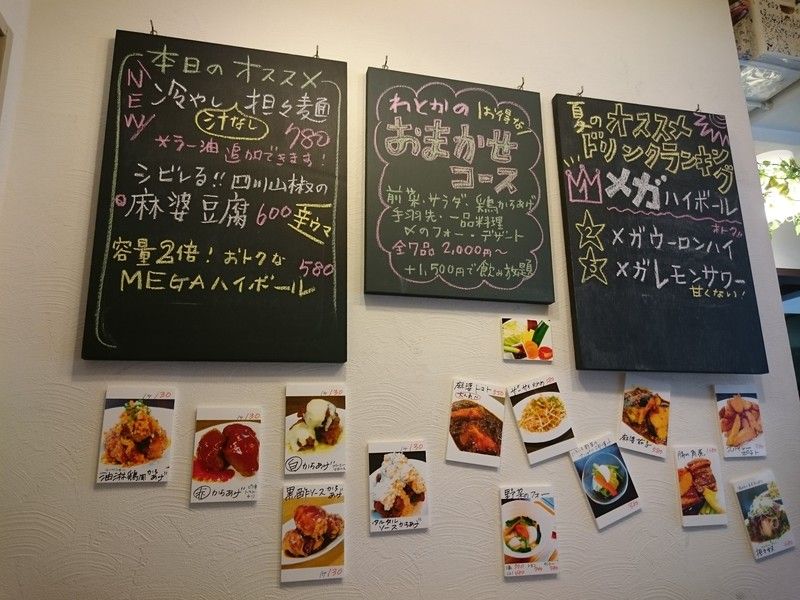 本日のオススメ
NEW
冷やし担々麺
汁なし
780
※ラー油追加できます!
シビレる!!四川山椒の
麻婆豆腐 600 辛ウマ
容量2倍!おトクな
MEGAハイボール 580
わとかの お得な
おまかせ
コース
前菜・サラダ・鶏からあげ
手羽先・一品料理
〆のフォー・デザート
全7品 2,000円~
+1,500円で飲み放題
夏のオススメ
ドリンクランキング
1 メガハイボール
おトク!!
2 メガウーロンハイ
3 メガレモンサワー
甘くない!
1ケ130
油淋鶏風からあげ
1ケ130
赤からあげ
1ケ130
白からあげ
黒酢ソースからあげ
1ケ130
1ケ130
タルタル
ソースからあげ
麻婆トマト
麻婆茄子
野菜のフォー
豚の角煮